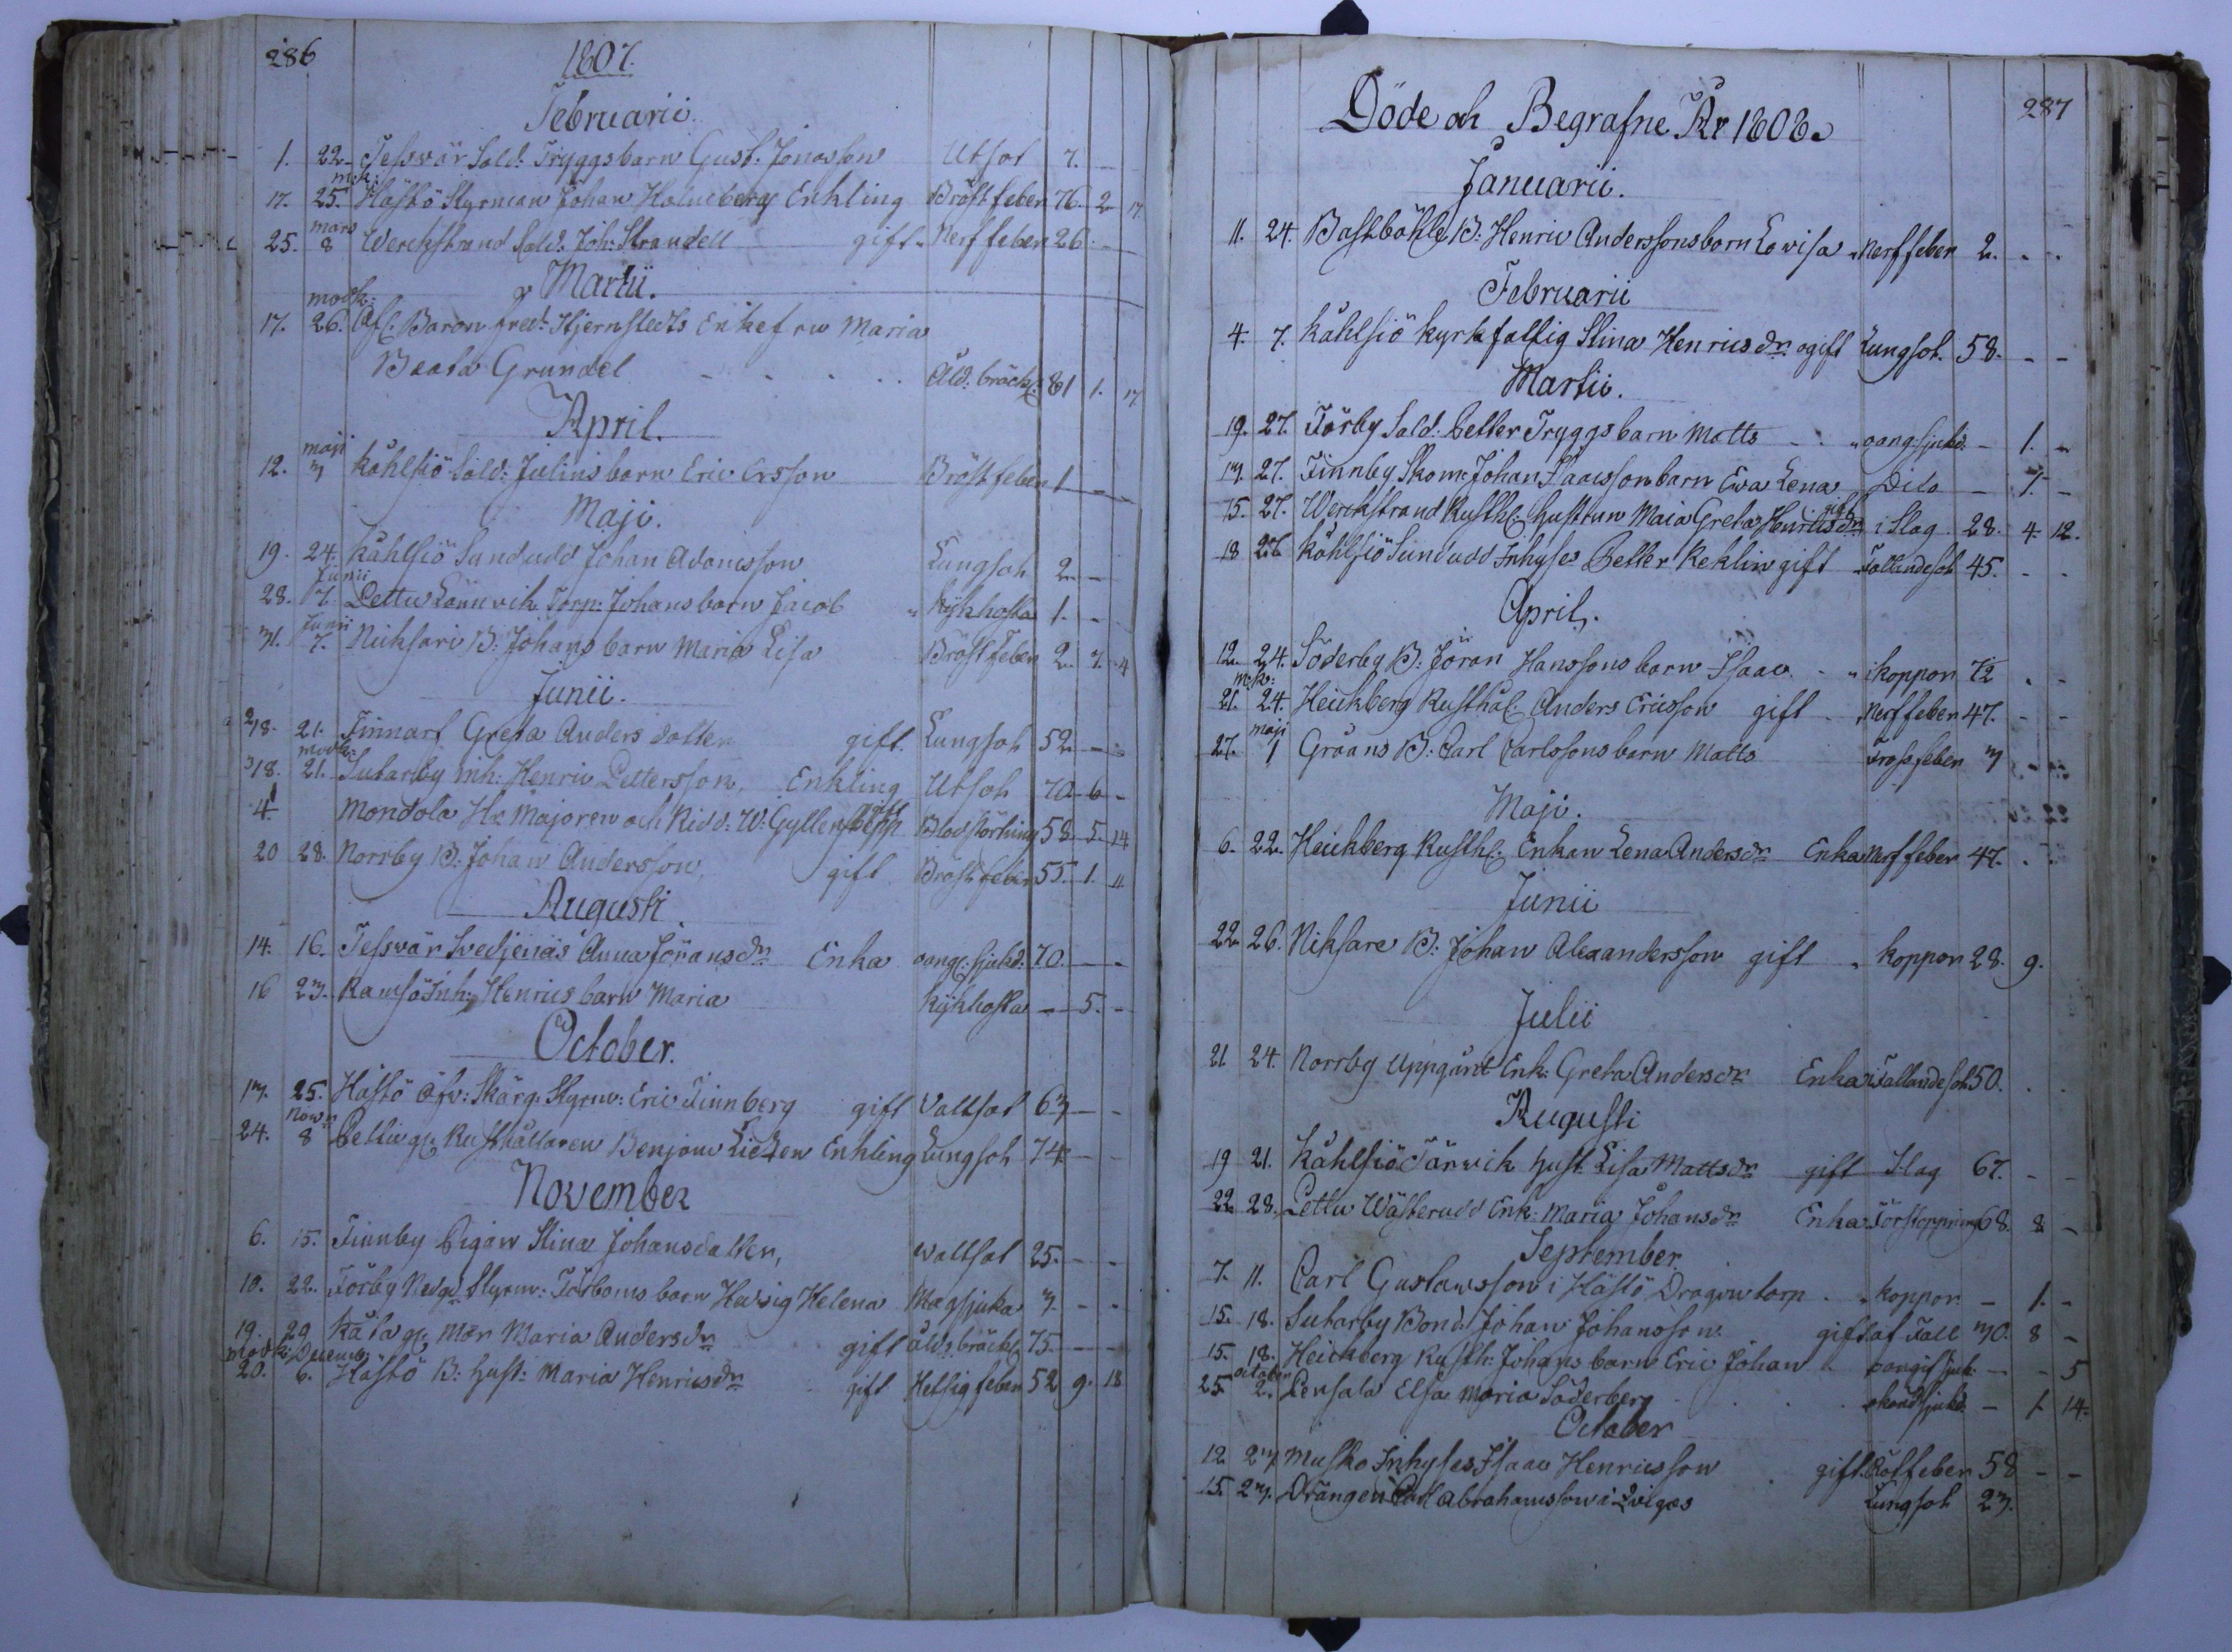 286
1807.
Februarii
1. 22. Tessvär Sold: Tryggs barn Gust: Jonasson Utsot 7. -
17. mck: 25. Hästö Styrman Johan Holmberg Enkling Bröstfeber 76. 2 17
25. mars 8 Werckstrand Sold: Joh: Strandell gift. Nerffeber 26. -
Martii.
17. modk: 26. Afl: Baron Fred: Stjernstedts Enkefru Maria
Beata Grundel - - - - Åld: bräckl: 81 1. 17
April.
12. maji 3 Kåhlsiö Sold: Julins barn Eric Ersson Bröstfeber 1 - -
Maji.
19. 24. Kåhlsiö Sundudd Johan Adamsson Lungsot 2. -
28. Junii 7. Pettu Lönnvik Torp: Johans barn Jacob Kikhosta 1. -
31. Junii 7. Nicksari B: Johans barn Maria Lisa Bröstfeber 2. 7. 4
Junii.
2 18. 21. Finnarf Greta Anders dotter gift. Lungsot 52. - -
3 18. modk: 21. Sutarby inh: Henric Pettersson, Enkling Utsot 70 6 -
4 Mondola Hr Majoren och Ridd: W: Gyllenbögel gift Blodstörtning 58. 5. 14
20 28. Norrby B: Johan Andersson, gift Bröstfeber 55. 1. 11
Augusti.
14. 16. Tessvär Svedjenäs Anna Jöransdr Enka oangl: sjukd: 70. - -
16 23. Ramsö Inh: Henrics barn Maria Kikhosta - 5. -
October.
13. 25. Hästö Öfv: Skärg: Styrm: Eric Finnberg gift Vattsot 63 - -
24. Novr 8 Pettu gl: Rusthållaren Benjam Lietzen Enkling Lungsot 74 - -
November
6. 15. Finnby Pigan Stina Johansdotter, Wattsot 25. - -
10. 22. Förby Nedgd Styrm: Förboms barn Hedvig Helena Magsjuka 3. - -
19. 29 Kåla gl: Mor Maria Andersdr gift åld: bräckl: 75. - -
modk: 20. Decemb: 6. Hästö B: hust: Maria Henricsdr gift Hetsig feber 52 9. 18
287
Döde och Begrafne År 1808.
Januarii.
11. 24. Bastböhle B: Henric Anderssons barn Lowisa Nerffeber 2. - -
Februarii
4. 7. Kåhlsiö kyrkfattig Stina Henricsdr ogift Lungsot. 58. - -
Martii.
19. 27. Förby Sold: Petter Tryggs barn Matts - - oang: sjukd: - 1. -
13. 27. Finnby Skom: Johan Isacsson barn Eva Lena Dito - 7. -
15. 27. Werckstrand Rusth: hustrun Maia Greta Henricsdr gift i Slag 28. 4. 12.
18 27. Kåhlsiö Sundudd Inhyses Petter Reklin gift Fallandesot 45. - -
April.
12. 24. Söderby B: Jöran Hanssons barn Isaac - - koppor 1/2 - -
21. m:k: 24. Heickberg Rusthål: Anders Ericsson gift - Nerffeber 47. - -
27. maji 1 Gråans B: Carl Carlssons barn Matts Frossfeber 3 - -
Maji.
6. 22. Heickberg Rusth: Enkan Lena Andersdr Enka Nerffeber 47. - -
Junii
22. 26. Niksare B: Johan Alexandersson gift - koppor 28. 9.
Julii
21. 24. Norrby Uppgånt Enk: Greta Andersdr Enka Fallandesot 50. - -
Augusti
19 21. Kåhlsiö Tärwik hust: Lisa Mattsdr gift Slag 67. - -
22. 28. Pettu Wästerudd Enk: Maria Johansdr Enka Förstoppning 68. 8 -
September
7. 11. Carl Gustavsson i Hästö Dragontorp - koppor. - 1. -
15. 18. Sutarby Bond: Johan Johansson gift af Fall 30. 8 -
15. 18. Heickberg Rusth: Johans barn Eric Johan - oangif sjuk: - - 5
25. october 2. Pensala Elsa Maria Söderberg - - - okänd sjukd: - 1. 14.
October
12. 23. Musko Inhyses Isaac Henricsson gift. Rötfeber 58 - -
15. 23. Drängen Carl Abrahamsson i Lungsot 23.